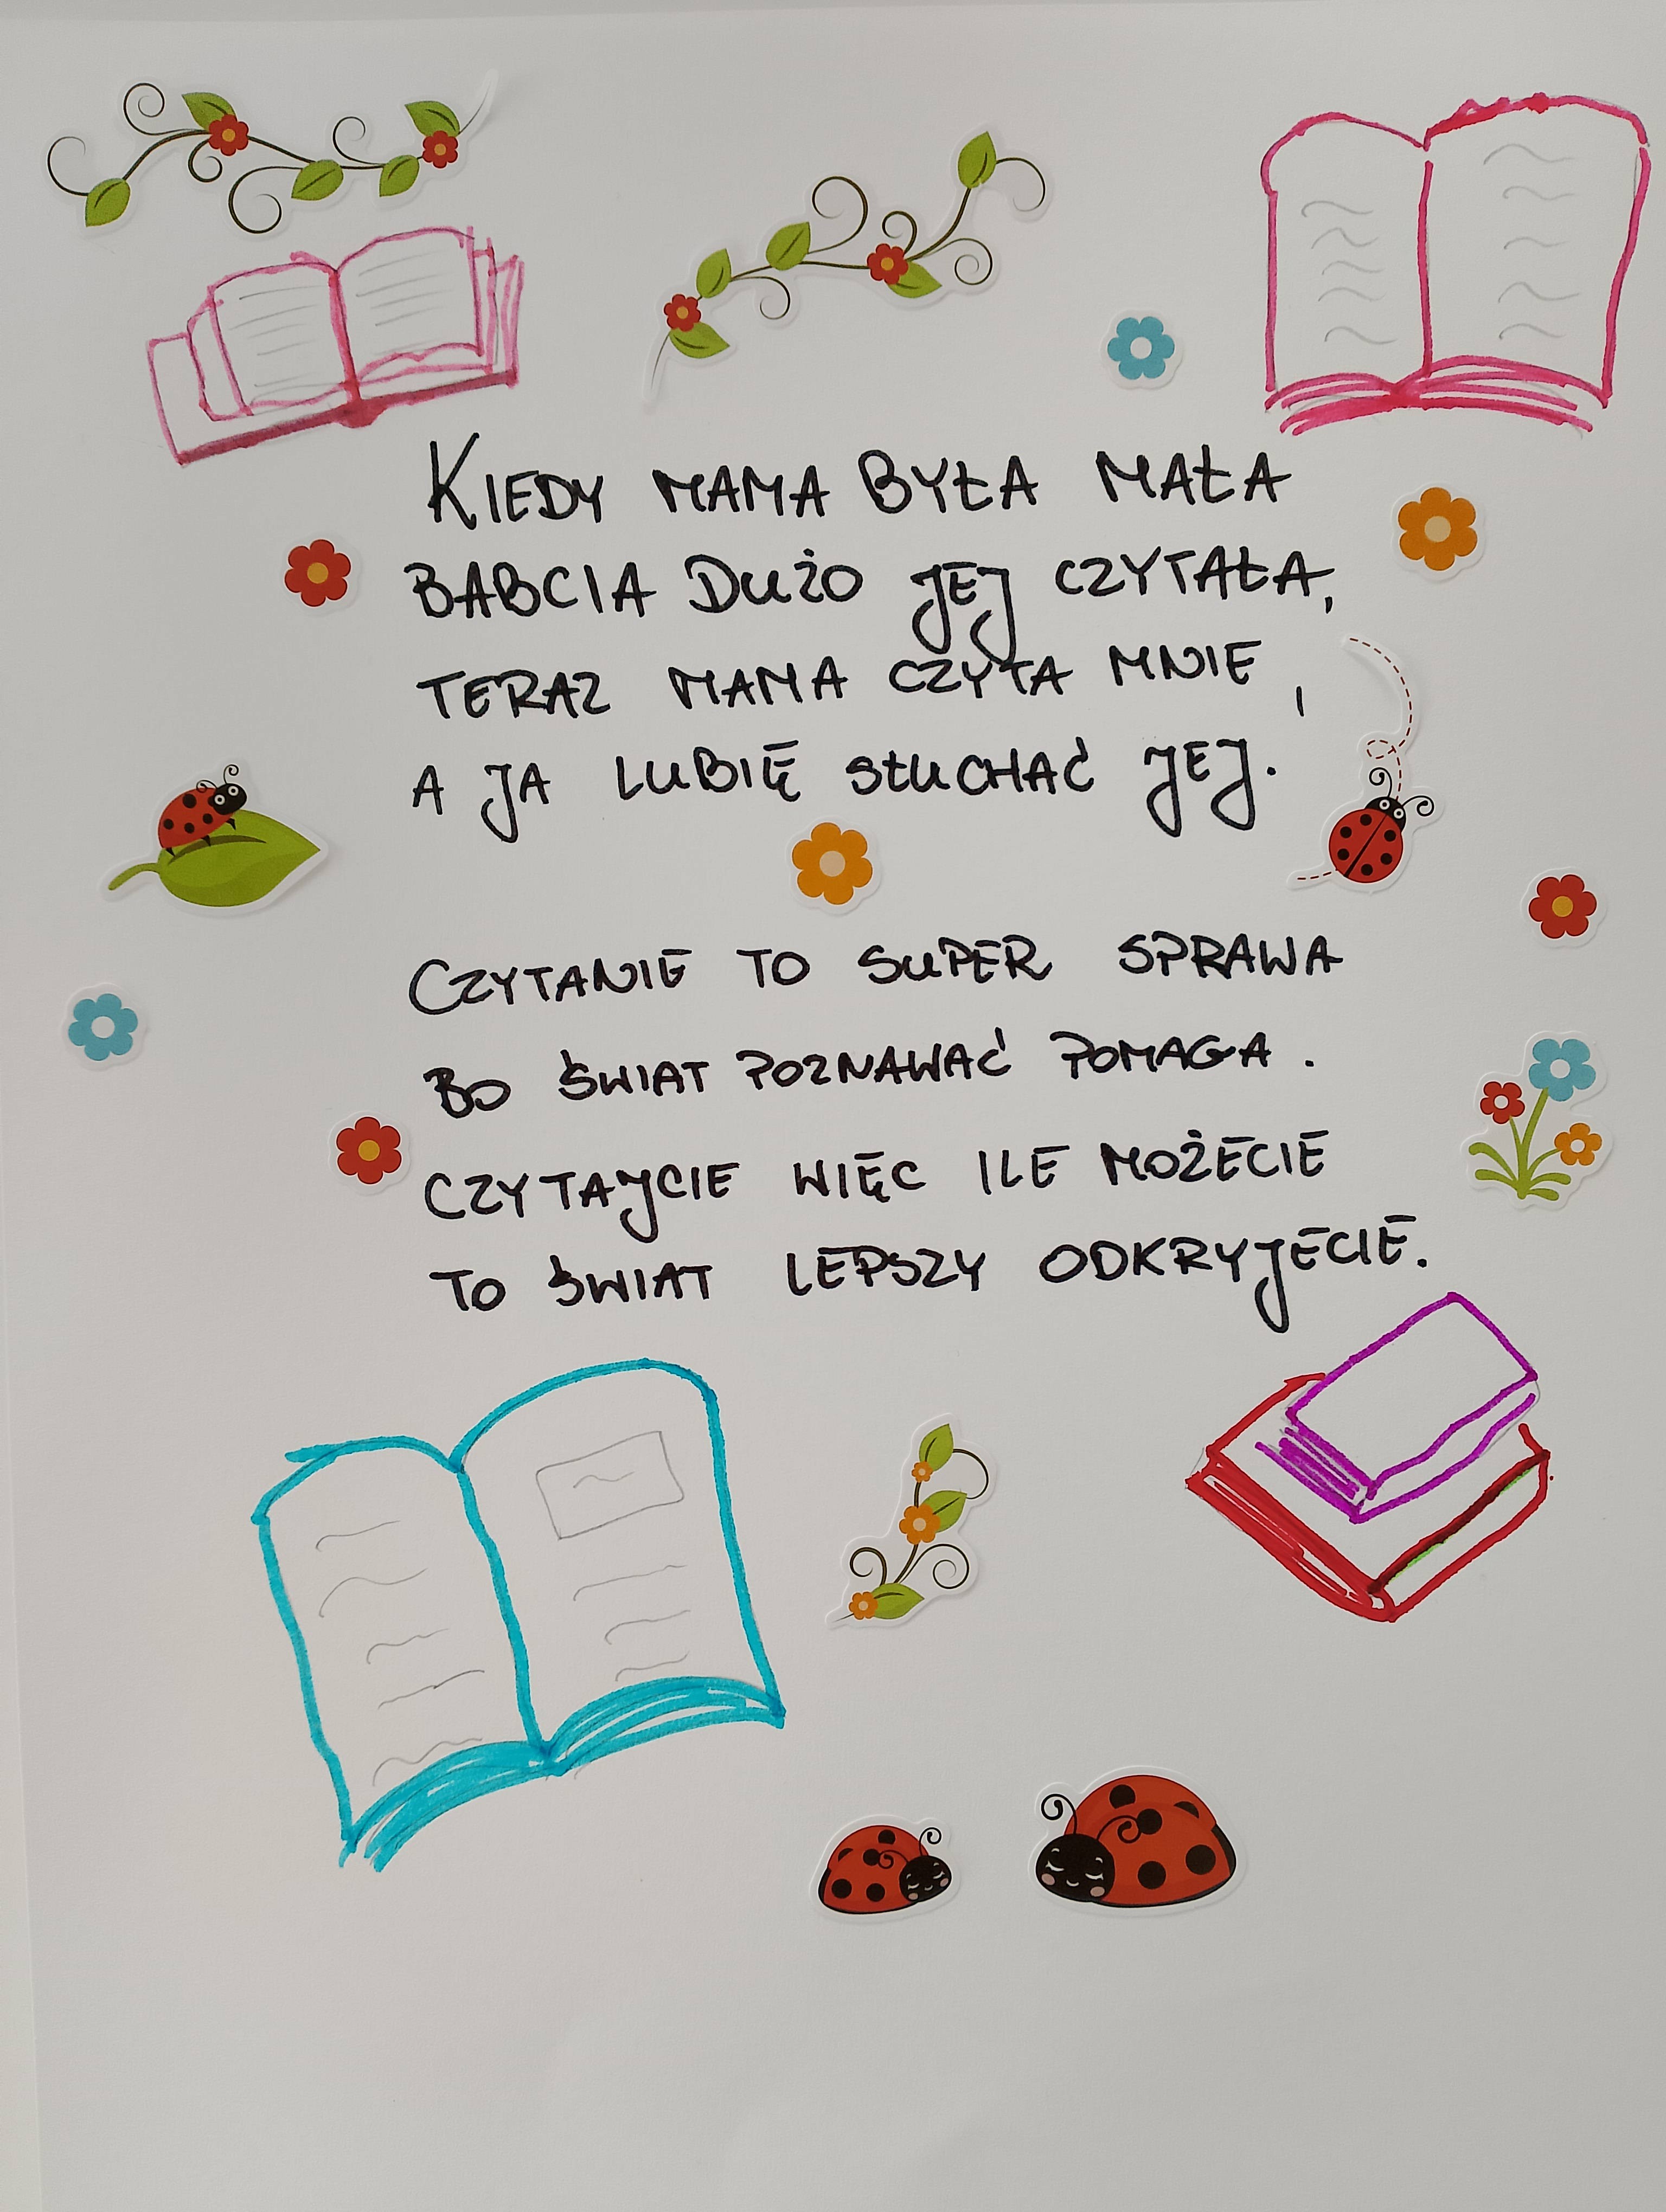 KIEDY MAMA BYŁA MAŁA
BABCIA DUŻO JEJ CZYTAŁA,
TERAZ MAMA CZYTA MNIE,
A JA LUBIĘ SŁUCHAĆ JEJ.
CZYTANIE TO SUPER SPRAWA
BO ŚWIAT POZNAWAĆ POMAGA.
CZYTAJCIE WIĘC ILE MOŻECIE
TO ŚWIAT LEPSZY ODKRYJECIE.